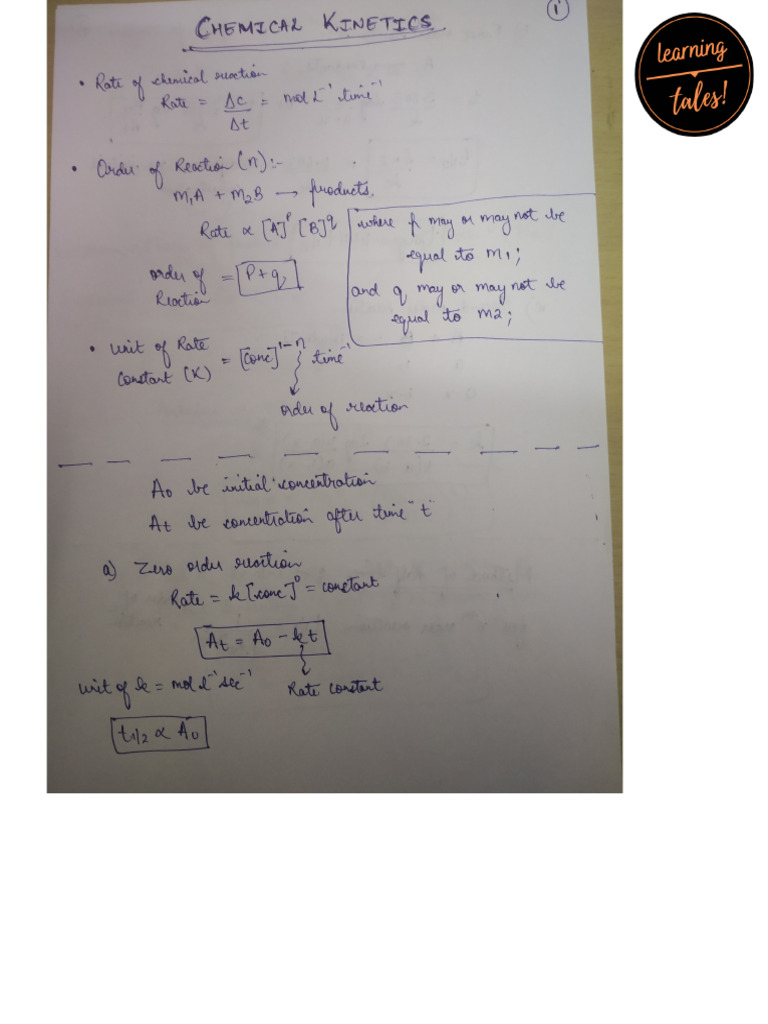 1
CHEMICAL KINETICS
learning
tales!
• Rate of chemical reaction
Rate = Δc/Δt = mol L⁻¹ time⁻¹
• Order of Reaction (n):-
m₁A + m₂B → products.
Rate ∝ [A]^p [B]^q
where p may or may not be
equal to m₁;
and q may or may not be
equal to m2;
order of
Reaction = P+q
• Unit of Rate
constant (K) = [conc]^1-n time⁻¹
order of reaction
A₀ be initial concentration
At be concentration after time "t"
a) Zero order reaction
Rate = k[conc]⁰ = constant
At = A₀ - kt
Unit of k = mol l⁻¹ sec⁻¹
Rate constant
t1/2 ∝ A₀